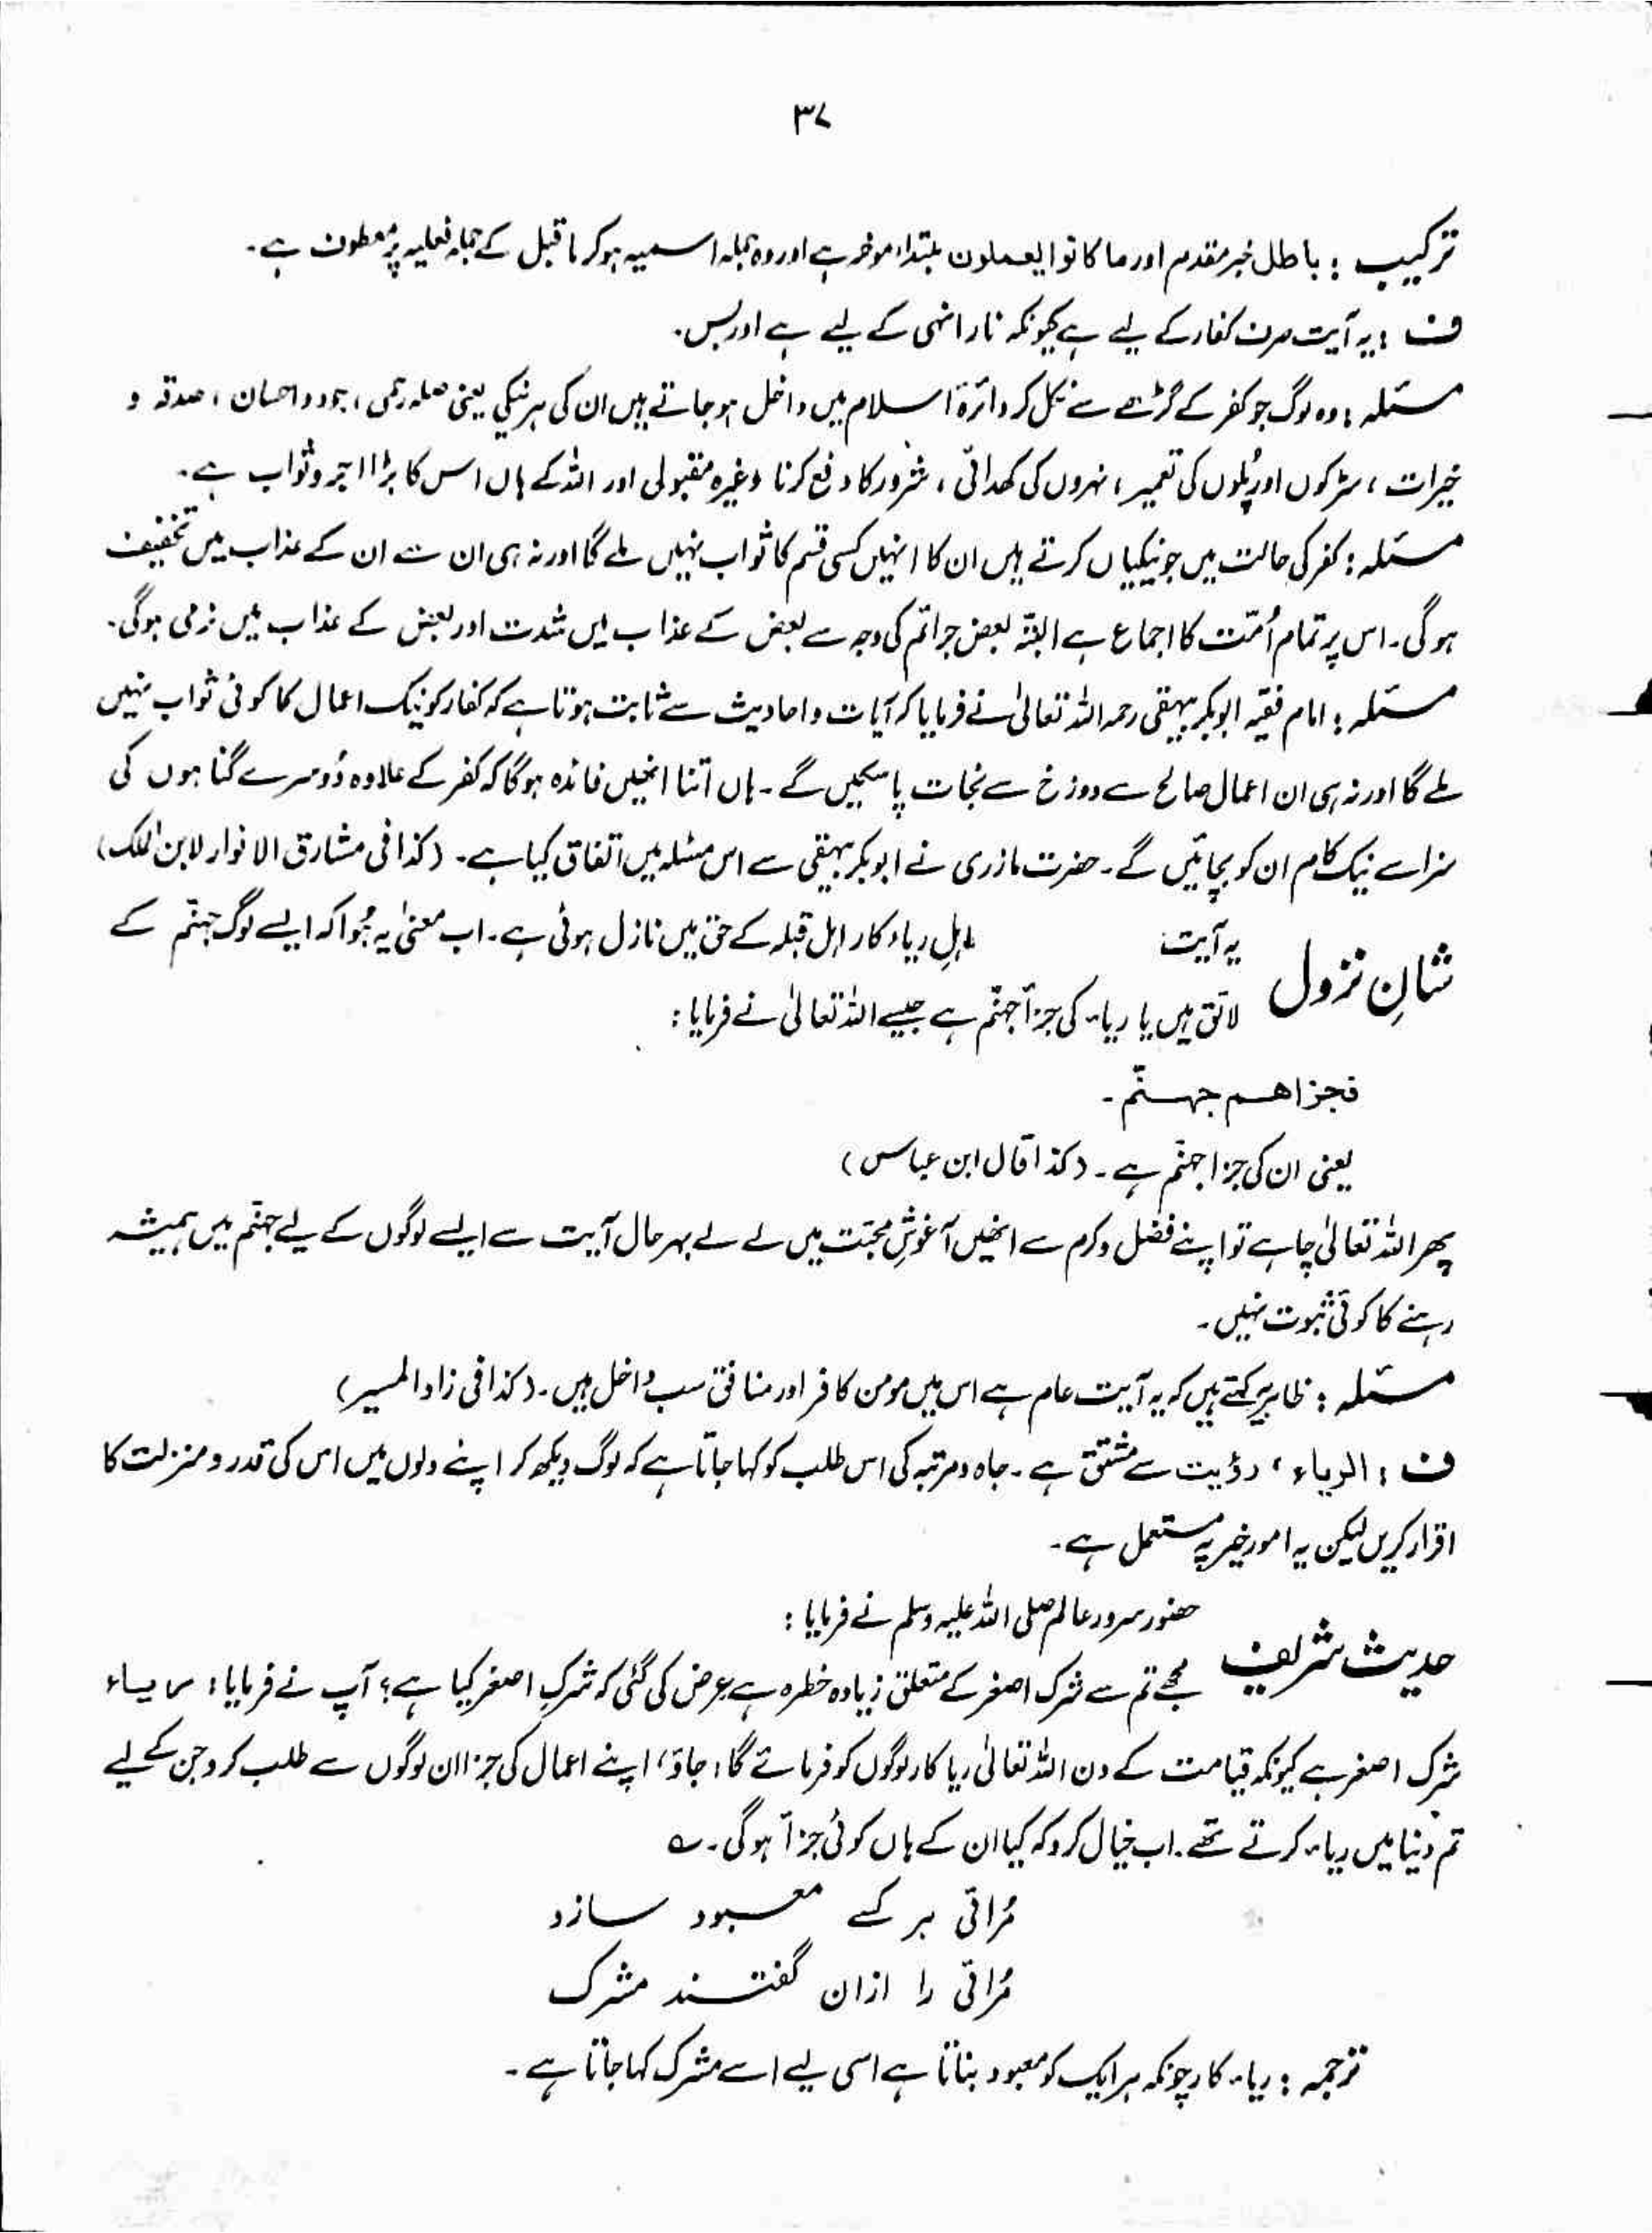 ۳۷
ترکیب : باطل خبر مقدم اور ما کانوا یعملون مبتداء موخر ہے اور وہ جملہ اسمیہ ہو کر ماقبل کے جملہ فعلیہ پر معطوف ہے۔
ف : یہ آیت صرف کفار کے لیے ہے کیونکہ نار انہی کے لیے ہے اور بس۔
مسئلہ : وہ لوگ جو کفر کے گڑھے سے نکل کر دائرۂ اسلام میں داخل ہو جاتے ہیں ان کی ہر نیکی یعنی صلہ رحمی ، جود و احسان ، صدقہ و
خیرات ، سڑکوں اور پُلوں کی تعمیر ، نہروں کی کھدائی ، شرور کا دفع کرنا وغیرہ مقبولی اور اللہ کے ہاں اس کا بڑا اجر و ثواب ہے۔
مسئلہ : کفر کی حالت میں جو نیکیاں کرتے ہیں ان کا انہیں کسی قسم کا ثواب نہیں ملے گا اور نہ ہی ان سے ان کے عذاب میں تخفیف
ہو گی۔ اس پر تمام اُمّت کا اجماع ہے البتّہ بعض جرائم کی وجہ سے بعض کے عذاب میں شدت اور بعض کے عذاب میں نرمی ہوگی۔
مسئلہ : امام فقیہ ابوبکر بیہقی رحمہ اللہ تعالیٰ نے فرمایا کہ آیات و احادیث سے ثابت ہوتا ہے کہ کفار کو نیک اعمال کا کوئی ثواب نہیں
ملے گا اور نہ ہی ان اعمال صالح سے دوزخ سے نجات پا سکیں گے۔ ہاں اتنا انھیں فائدہ ہو گا کہ کفر کے علاوہ دُوسرے گناہوں کی
سزا سے نیک کام ان کو بچائیں گے۔ حضرت مازری نے ابوبکر بیہقی سے اس مسئلہ میں اتفاق کیا ہے۔ (کذا فی مشارق الانوار لابن الملک)
شانِ نزول یہ آیت اہلِ ریاء کار اہل قبلہ کے حق میں نازل ہوئی ہے۔ اب معنیٰ یہ ہُوا کہ ایسے لوگ جہنّم کے
لائق ہیں یا ریاء کی جزأ جہنّم ہے جیسے اللہ تعالیٰ نے فرمایا :
فجزاھم جہنّم۔
یعنی ان کی جزا جہنّم ہے۔ (کذا قال ابن عباس)
پھر اللہ تعالیٰ چاہے تو اپنے فضل و کرم سے انھیں آغوشِ محبّت میں لے لے بہرحال آیت سے ایسے لوگوں کے لیے جہنّم میں ہمیشہ
رہنے کا کوئی ثبوت نہیں۔
مسئلہ : ظاہر یہ کہتے ہیں کہ یہ آیت عام ہے اس میں مومن کافر اور منافق سب داخل ہیں۔ (کذا فی زاد المسیر)
ف : الریاء ، رؤیت سے مشتق ہے۔ جاہ و مرتبہ کی اس طلب کو کہا جاتا ہے کہ لوگ دیکھ کر اپنے دلوں میں اس کی قدر و منزلت کا
اقرار کریں لیکن یہ امور خیر پہ مستعمل ہے۔
حدیث شریف حضور سرور عالم صلی اللہ علیہ وسلم نے فرمایا :
مجھے تم سے شرک اصغر کے متعلق زیادہ خطرہ ہے عرض کی گئی کہ شرکِ اصغر کیا ہے؟ آپ نے فرمایا : ریاء
شرک اصغر ہے کیونکہ قیامت کے دن اللہ تعالیٰ ریا کار لوگوں کو فرمائے گا : جاؤ ، اپنے اعمال کی جزا ان لوگوں سے طلب کرو جن کے لیے
تم دنیا میں ریاء کرتے تھے۔ اب خیال کرو کہ کیا ان کے ہاں کوئی جزأ ہوگی۔ ؎
مُرائی ہر کسے معبود سازد
مُرائی را ازان گفتند مشرک
ترجمہ : ریاء کار چونکہ ہر ایک کو معبود بناتا ہے اسی لیے اسے مشرک کہا جاتا ہے۔